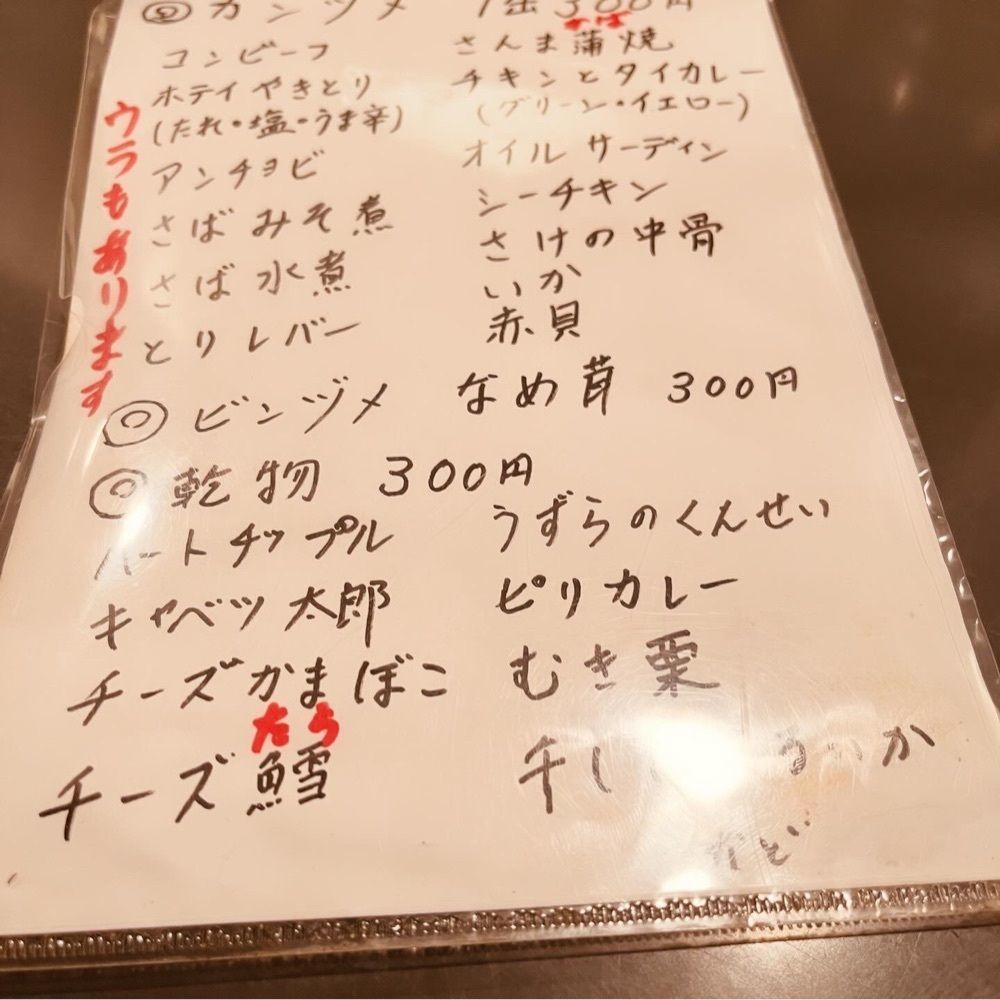 ◎ カンヅメ 1缶300円
コンビーフ
ホテイやきとり
(たれ・塩・うま辛)
アンチョビ
さばみそ煮
さば水煮
とりレバー
かば
さんま蒲焼
チキンとタイカレー
(グリーン・イエロー)
オイルサーディン
シーチキン
さけの中骨
いか
赤貝
ウラもあります
◎ ビンヅメ なめ茸 300円
◎ 乾物 300円
ハートチップル
キャベツ太郎
チーズかまぼこ
たら
チーズ鱈
うずらのくんせい
ピリカレー
むき栗
干し
など